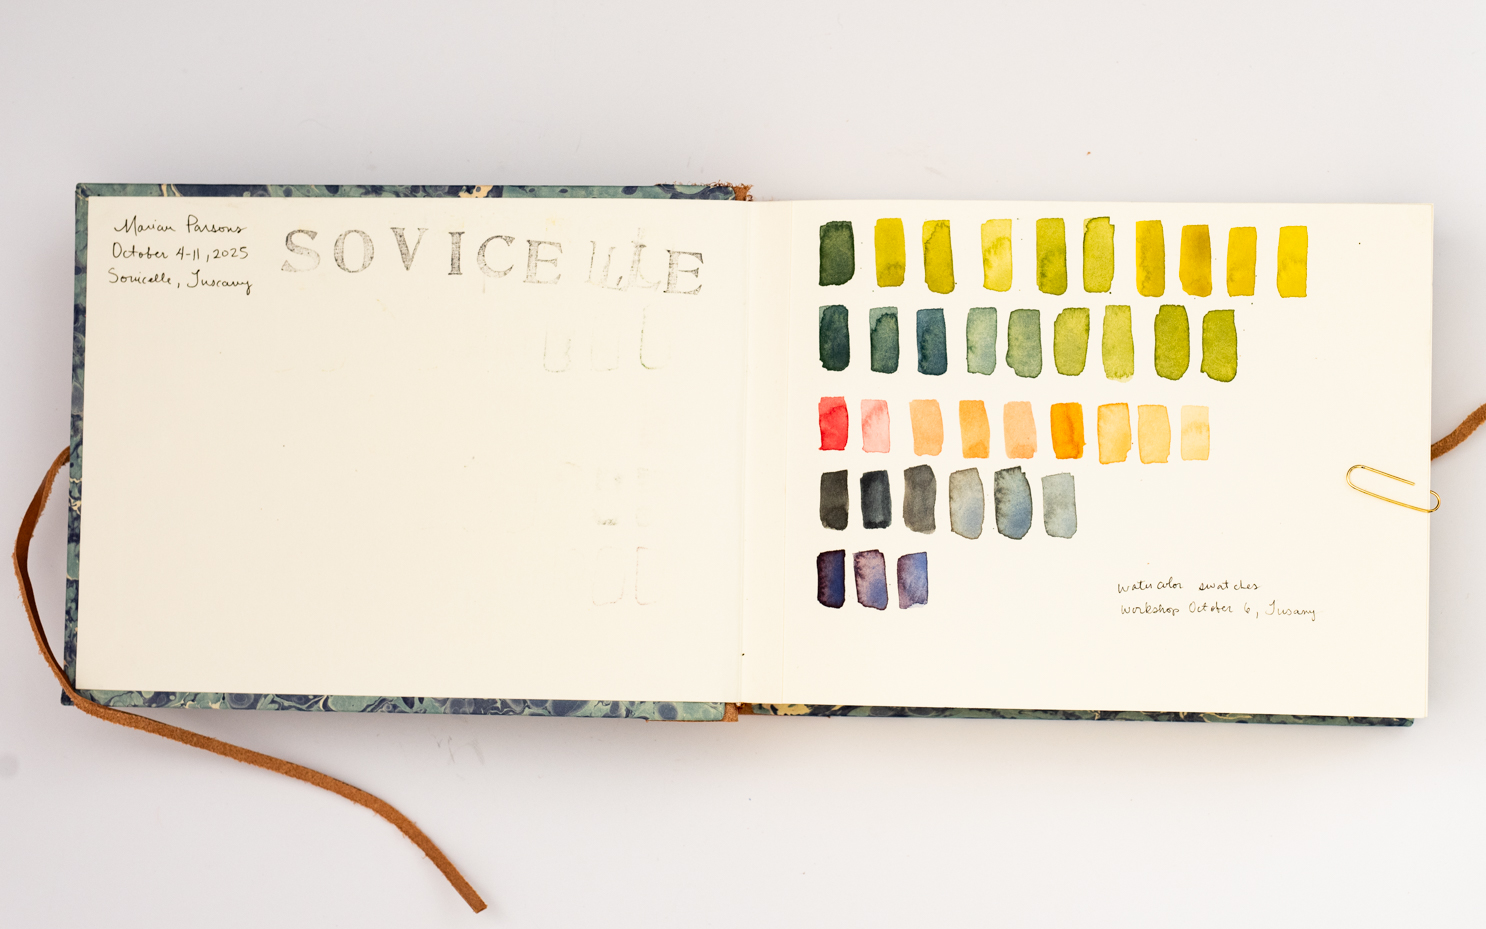 Marian Parsons
October 4-11, 2025
Sovicelle, Tuscany
SOVICELLE
watercolor swatches
workshop October 6, Tuscany